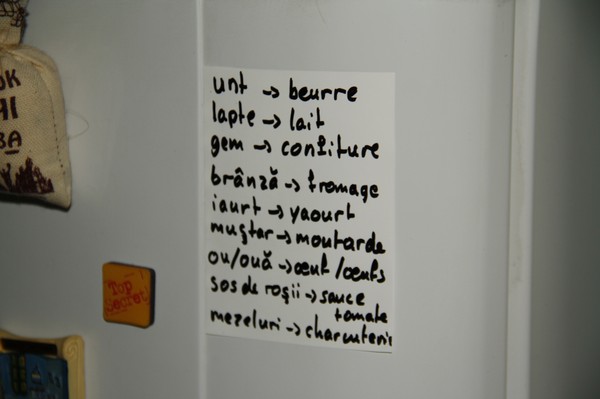 unt → beurre
lapte → lait
gem → confiture
brânză → fromage
iaurt → yaourt
muștar → moutarde
ou/ouă → œuf/œufs
sos de roșii → sauce
tomate
mezeluri → charcuterie
Top
Secret!
OK
HI
BA